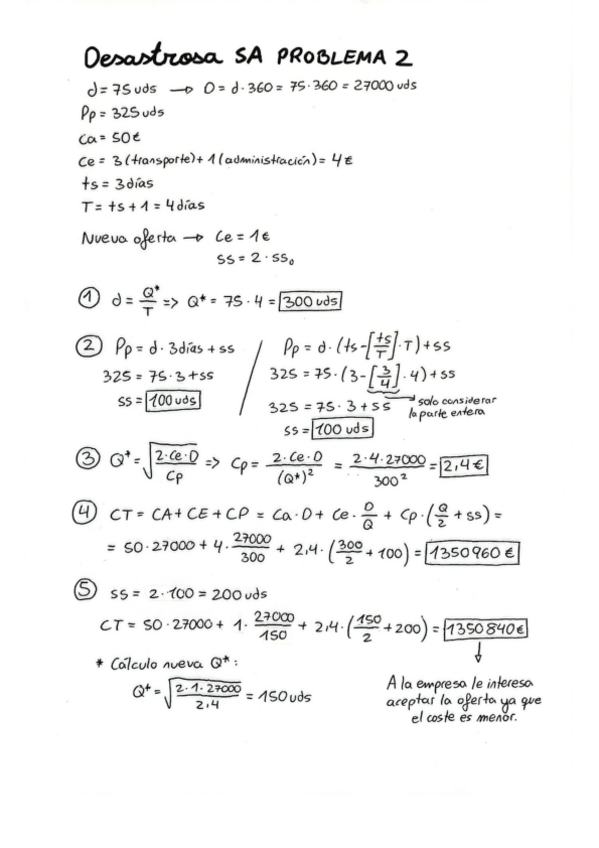 Desastrosa SA PROBLEMA 2
d = 75 uds → D = d·360 = 75·360 = 27000 uds
Pp = 325 uds
Ca = 50€
Ce = 3 (transporte) + 1 (administración) = 4€
ts = 3 días
T = ts + 1 = 4 días
Nueva oferta → Ce = 1€
SS = 2·SS₀
① d = Q*/T => Q* = 75·4 = 300 uds
② Pp = d·3días + ss / Pp = d·(ts-[ts/T]·T)+ss
325 = 75·3+ss / 325 = 75·(3-[3/4]·4)+ss
ss = 100 uds / 325 = 75·3+ss → solo considerar la parte entera
ss = 100 uds
③ Q* = √(2·Ce·D/Cp) => Cp = 2·Ce·D/(Q*)² = 2·4·27000/300² = 2,4€
④ CT = CA + CE + CP = Ca·D + Ce·D/Q + Cp·(Q/2 + ss) =
= 50·27000 + 4·27000/300 + 2,4·(300/2 + 100) = 1350960€
⑤ ss = 2·100 = 200 uds
CT = 50·27000 + 1·27000/150 + 2,4·(150/2 + 200) = 1350840€
* Cálculo nueva Q*:
Q* = √(2·1·27000/2,4) = 150 uds
A la empresa le interesa
aceptar la oferta ya que
el coste es menor.